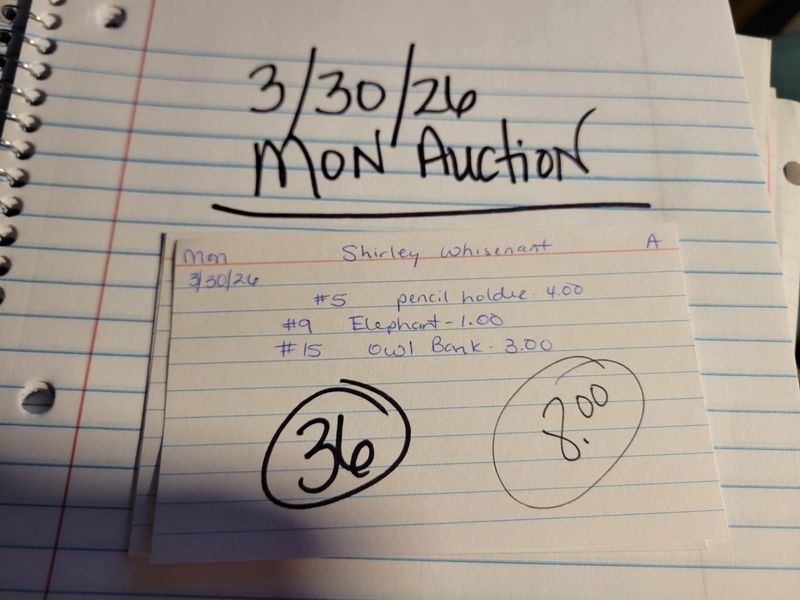 3/30/26
MON AUCTION
Mon Shirley Whisenant A
3/30/26
#5 pencil holder - 4.00
#9 Elephant - 1.00
#15 Owl Bank - 3.00
36 8.00